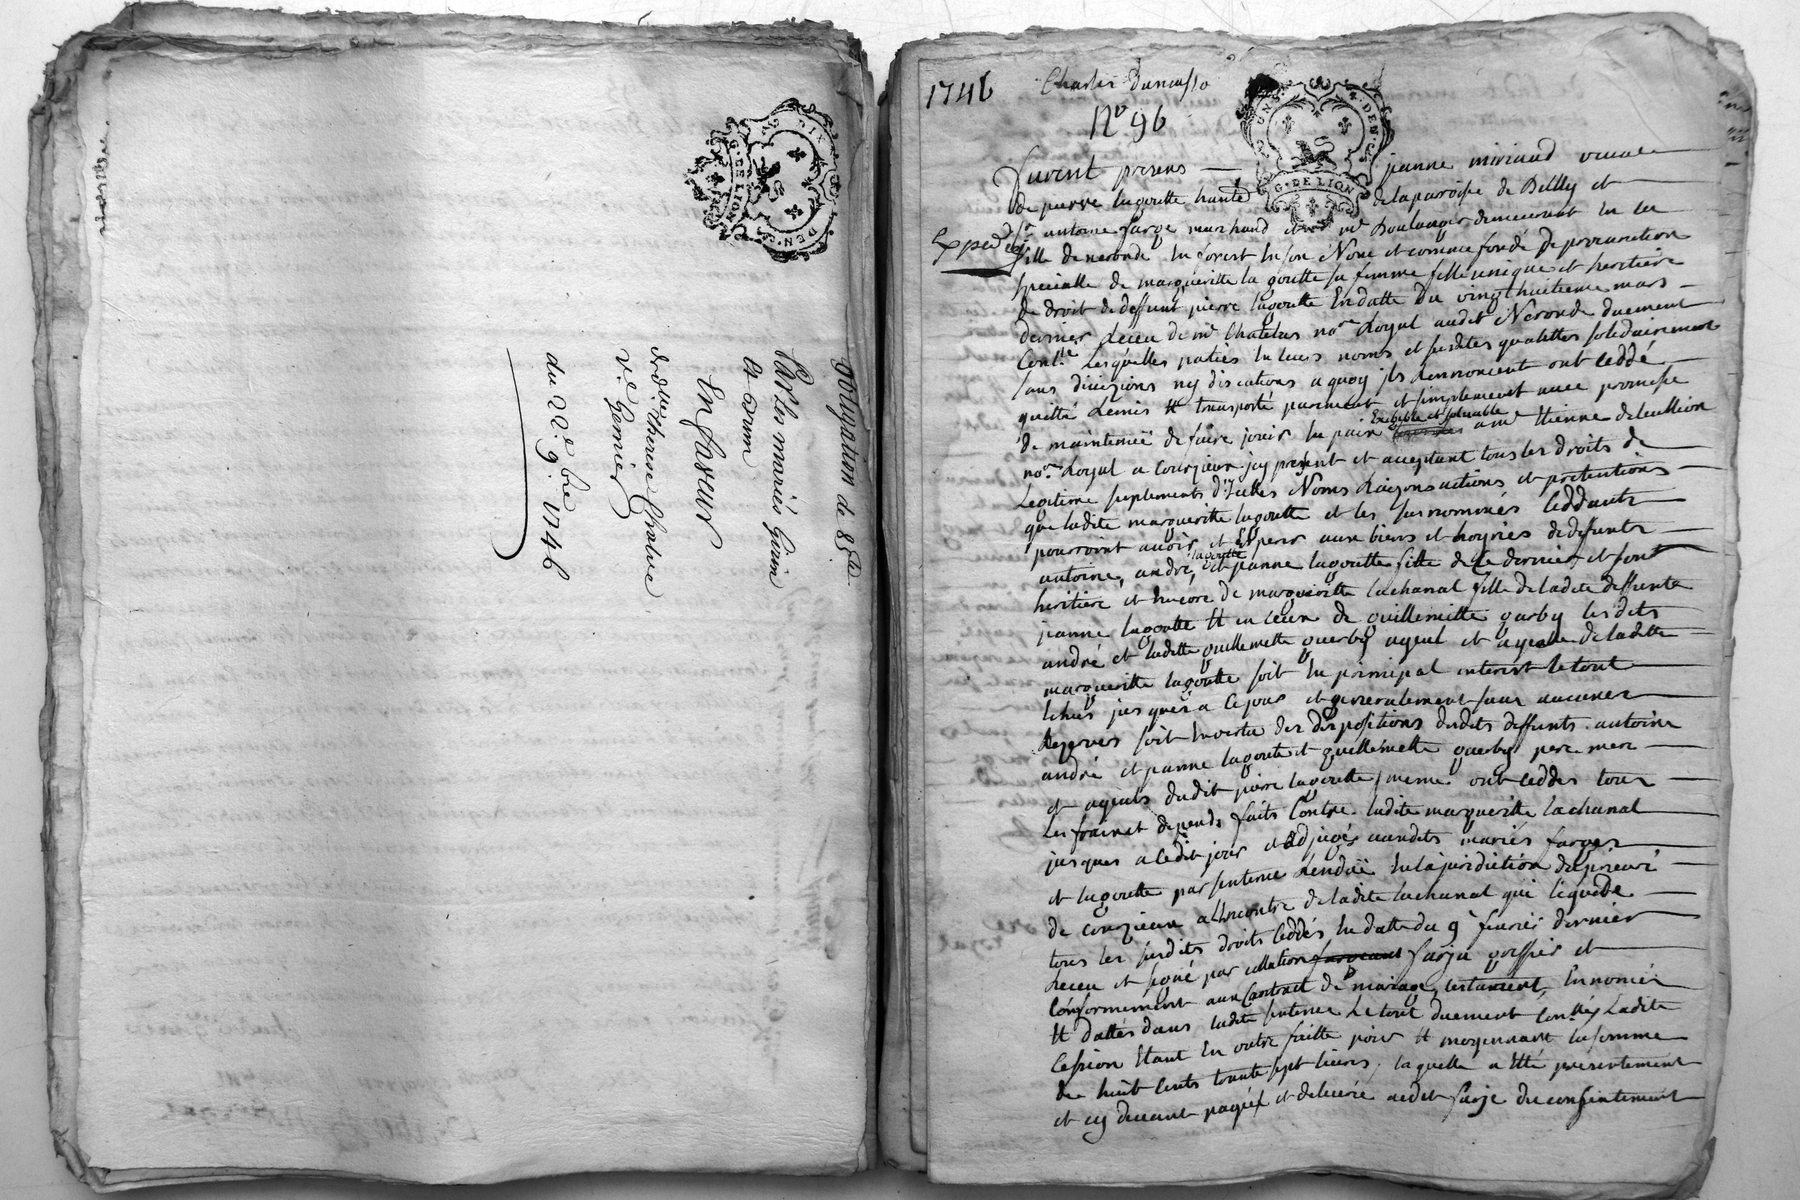 obligation de 85 lt
Par les mariés Girin
et arum
En faveur
de d.lle Therese Chalue
v.e Genier
du 22.e 9.bre 1746
G. DE LION
DIX DEN.
1746
N.o 96
UN S. 4. DEN.
G. DE LION
furent presens jeanne miriaud veuve
de pierre lagoutte habite de la paroisse de Billy et
Exped.
s.r antoine farge marchand et m.e Boulanger demeurant en la
ville de neronde en forest en son Nom et comme fondé de procuration
specialle de margueritte la goutte sa femme fille unique et heritiere
de droit de deffunt pierre lagoutte En datte du vingt huitieme mars
dernier Receu de m.e Chatelus no.re Royal audit Neronde duement
Cont.lé Lesquelles parties en leurs noms et susdites qualittes solidairement
sans divizions ny discutions a quoy ils Renoncent ont ceddé
quitté Remis et transporté purement et simplement avec promesse
de maintenüe de faire jouir en paix Exigible et solvable a m.e Etienne deleullion
no.re Royal a Courzieux icy present et acceptant tous les droits de
Legitime suplements d'Icelles Noms Raizons actions et pretentions
que ladite margueritte lagoutte et les susnommés Ceddants
pourroint avoir et Esperer aux biens et hoyries de deffunts
antoine, andré, lagoutte et jeanne lagoutte fille de ce dernier et son
heritiere et encore de marguerite lachanal fille de ladite deffunte
jeanne lagoutte et en ceux de guillemette querby lesdits
andré et ladite guillemette querby ayeul et ayeulle de ladite
marguerite lagoutte soit en principal interest le tout
Echus jusques a ce jour et generalement sans aucunes
Rezerves soit en vertu des dispositions desdits deffunts antoine
andré et jeanne lagoutte et guillemette querby pere mere
et ayeuls dudit pierre lagoutte / meme ont ceddés tous
les frais et depends faits Contre ladite marguerite lachanal
jusques a cedit jour et adjugés auxdits mariés farges
et lagoutte par sentence Rendüe en la jurisdiction du prieuré
de courzieux a l'Encontre de ladite lachanal qui liquide
tous les susdits droits ceddés en datte du 9.e fevrier dernier
Receu et signé par collation farge greffier et
Conformement aux Contract de mariage, testament, Ennoncés
et dattés dans ladite sentence Le tout duement Con.llés Ladite
Cession Etant En outre faitte pour et moyennant la somme
de huit Cents trente sept livres, laquelle a Eté presentement
et cy devant payée et delivrée audit farge du consentement